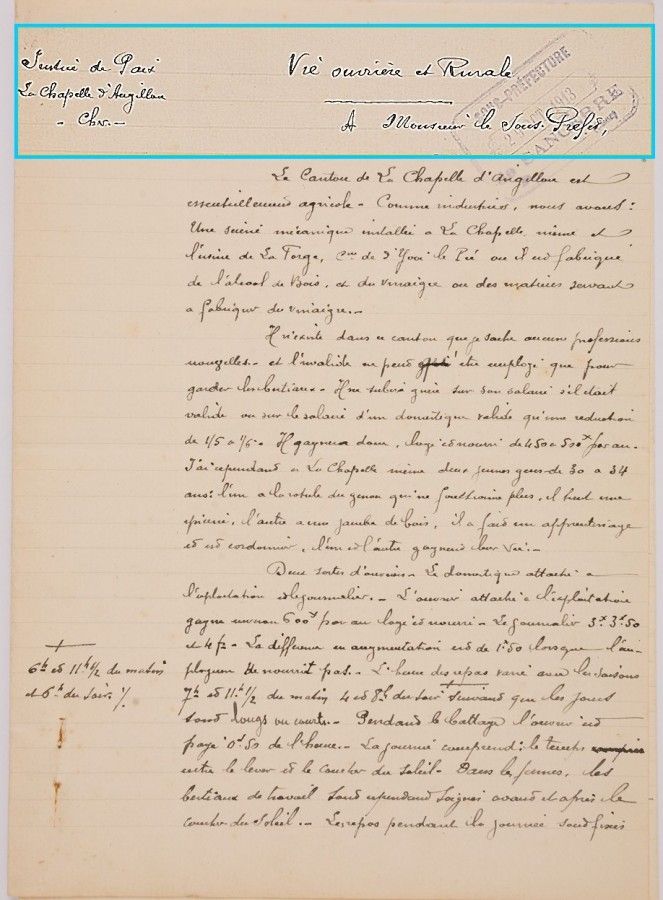 Justice de Paix
La Chapelle d'Angillon
- Cher. -
Vie ouvrière et Rurale
A Monsieur le Sous-Préfet,
SOUS-PRÉFECTURE
1913
SANCERRE
Le Canton de La Chapelle d'Angillon est
essentiellement agricole - Comme industries, nous avons :
Une scierie mécanique installée à La Chapelle même et
l'usine de La Forge, Cne de d'Ivoi le Pré où il est fabriqué
de l'alcool de Bois, et du vinaigre ou des matières servant
à fabriquer du vinaigre. -
Il n'existe dans ce canton que je sache aucune professions
nouvelles - et l'invalide ne peut être employé que pour
garder les bestiaux - Il ne subira guère sur son salaire s'il était
valide ou sur le salaire d'un domestique valide qu'une réduction
de 1/5 à 1/6 - Il gagnera donc, logé et nourri de 450 à 500f par an.
J'ai cependant à La Chapelle même deux jeunes gens de 30 à 34
ans : l'un a la rotule du genou qui ne fonctionne plus, il tient une
épicerie, l'autre a une jambe de bois, il a fait un apprentissage
et est cordonnier, l'un et l'autre gagnent leur vie. -
Deux sortes d'ouvriers - Le domestique attaché à
l'exploitation et le journalier. - L'ouvrier attaché à l'exploitation
gagne environ 600f par an logé et nourri - Le journalier 3f. 3f.50
et 4f - La différence en augmentation est de 1f50 lorsque l'em-
ployeur ne nourrit pas. - L'heure des repas varie avec les saisons
7h et 11h 1/2 du matin 4 et 8h du soir suivant que les jours
sont longs ou courts. - Pendant le battage l'ouvrier est
payé 0f.50 de l'heure. - La journée comprend : le temps
entre le lever et le coucher du soleil - Dans les fermes, les
bestiaux de travail sont cependant soignés avant et après le
coucher du soleil. - Les repos pendant la journée sont fixés
6h et 11h 1/2 du matin
et 6h du soir. /.